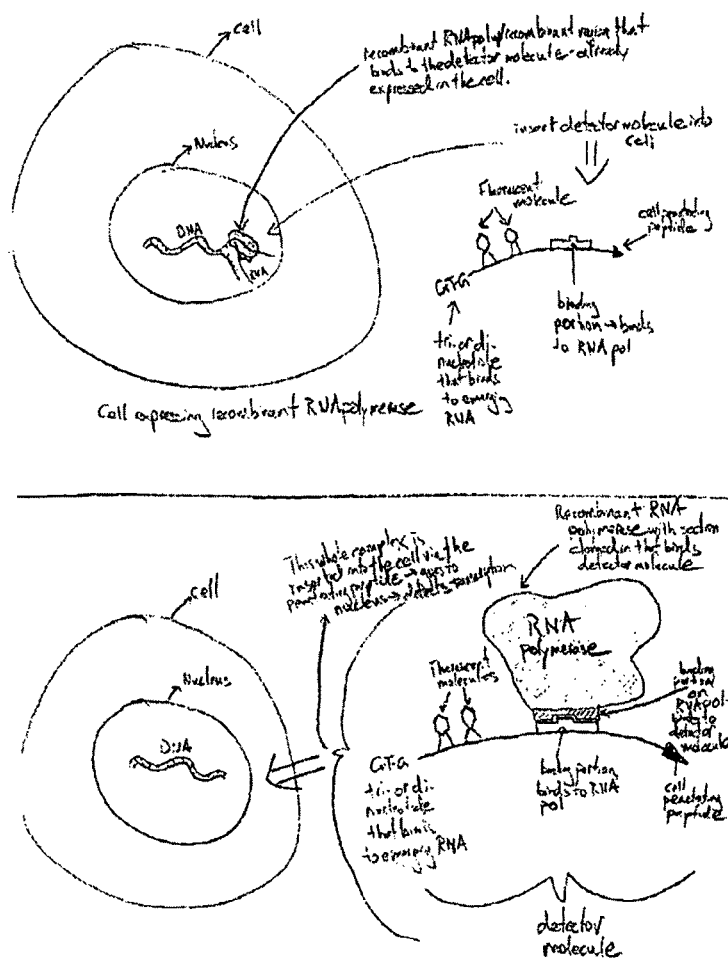 cell
recombinant RNA poly/recombinant region that
binds to the detector molecule already
expressed in the cell.
Nucleus
insert detector molecule into
cell
Fluorescent
molecule
DNA
RNA
cell penetrating
peptide
GTG
binding
portion → binds
to RNA pol
tri- or di-
nucleotide
that binds
to emerging
RNA
Cell expressing recombinant RNA polymerase
Recombinant RNA
polymerase with section
cloned in that binds
detector molecule
This whole complex is
inserted into the cell via the
penetrating peptide → goes to
nucleus → detects transcription
cell
Nucleus
DNA
RNA
polymerase
Fluorescent
molecules
binding
portion
on
RNA pol
binds to
detector
molecule
GTG
tri- or di-
nucleotide
that binds
to emerging RNA
binding portion
binds to RNA
pol
cell
penetrating
peptide
detector
molecule